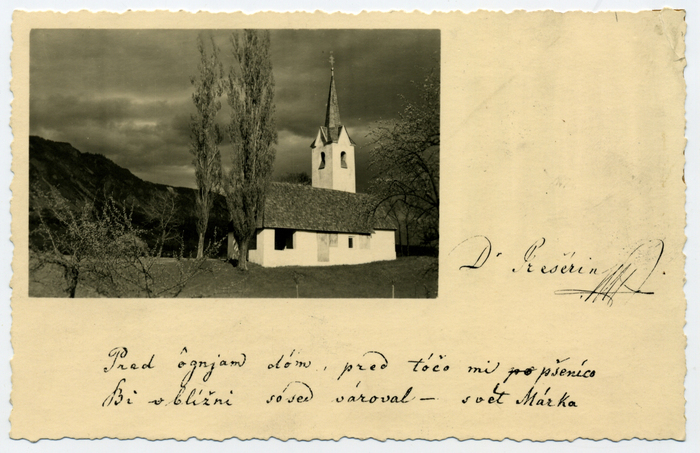 Dr Prešérin
Pred ôgnjam dóm, pred tóčo mi pšeníco
Bi v blížni sósed vároval – svét Márka